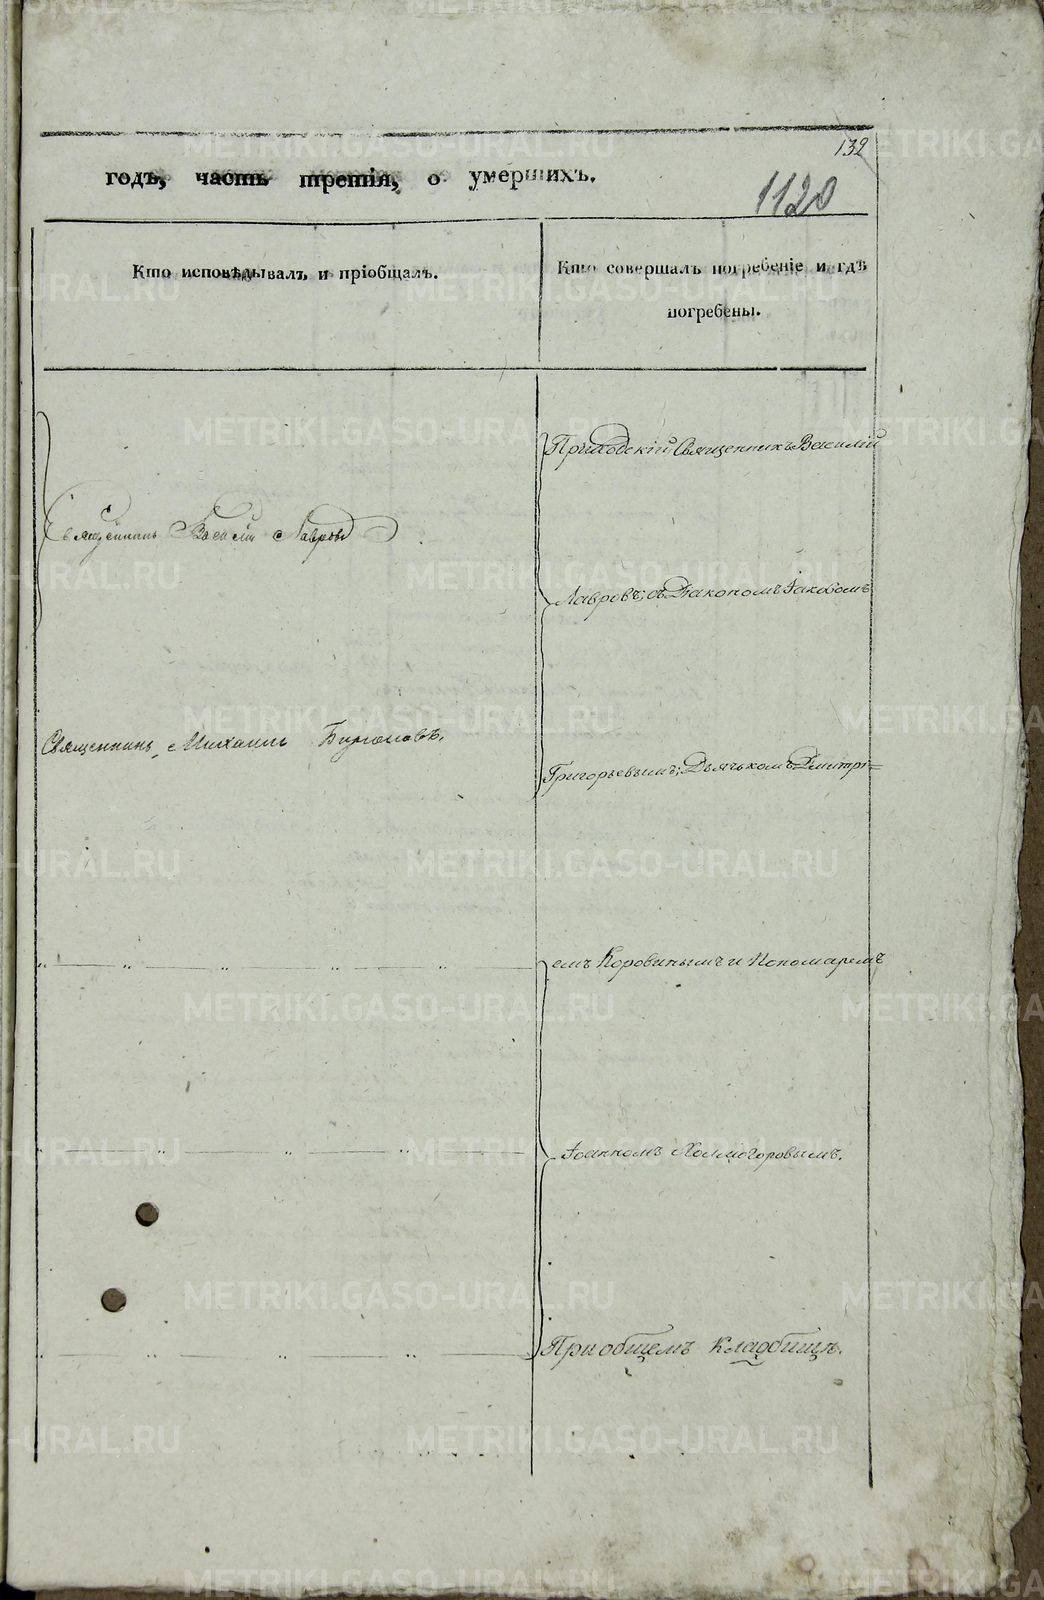 132
годъ, часть третія, о умершихъ.
1120
Кто исповѣдывалъ и пріобщалъ.
Кто совершалъ погребеніе и гдѣ
погребены.
Приходскій Священникъ Василій
Священникъ Василій Лавровъ
Лавровъ; съ Діакономъ Іаковомъ
Священникъ Михаилъ
Григорьевымъ; Дьячькомъ Дмитрі=
емъ Коровинымъ и Пономаремъ
Іоанномъ Холмогоровымъ.
При общемъ кладбищѣ.
METRIKI.GASO-URAL.RU